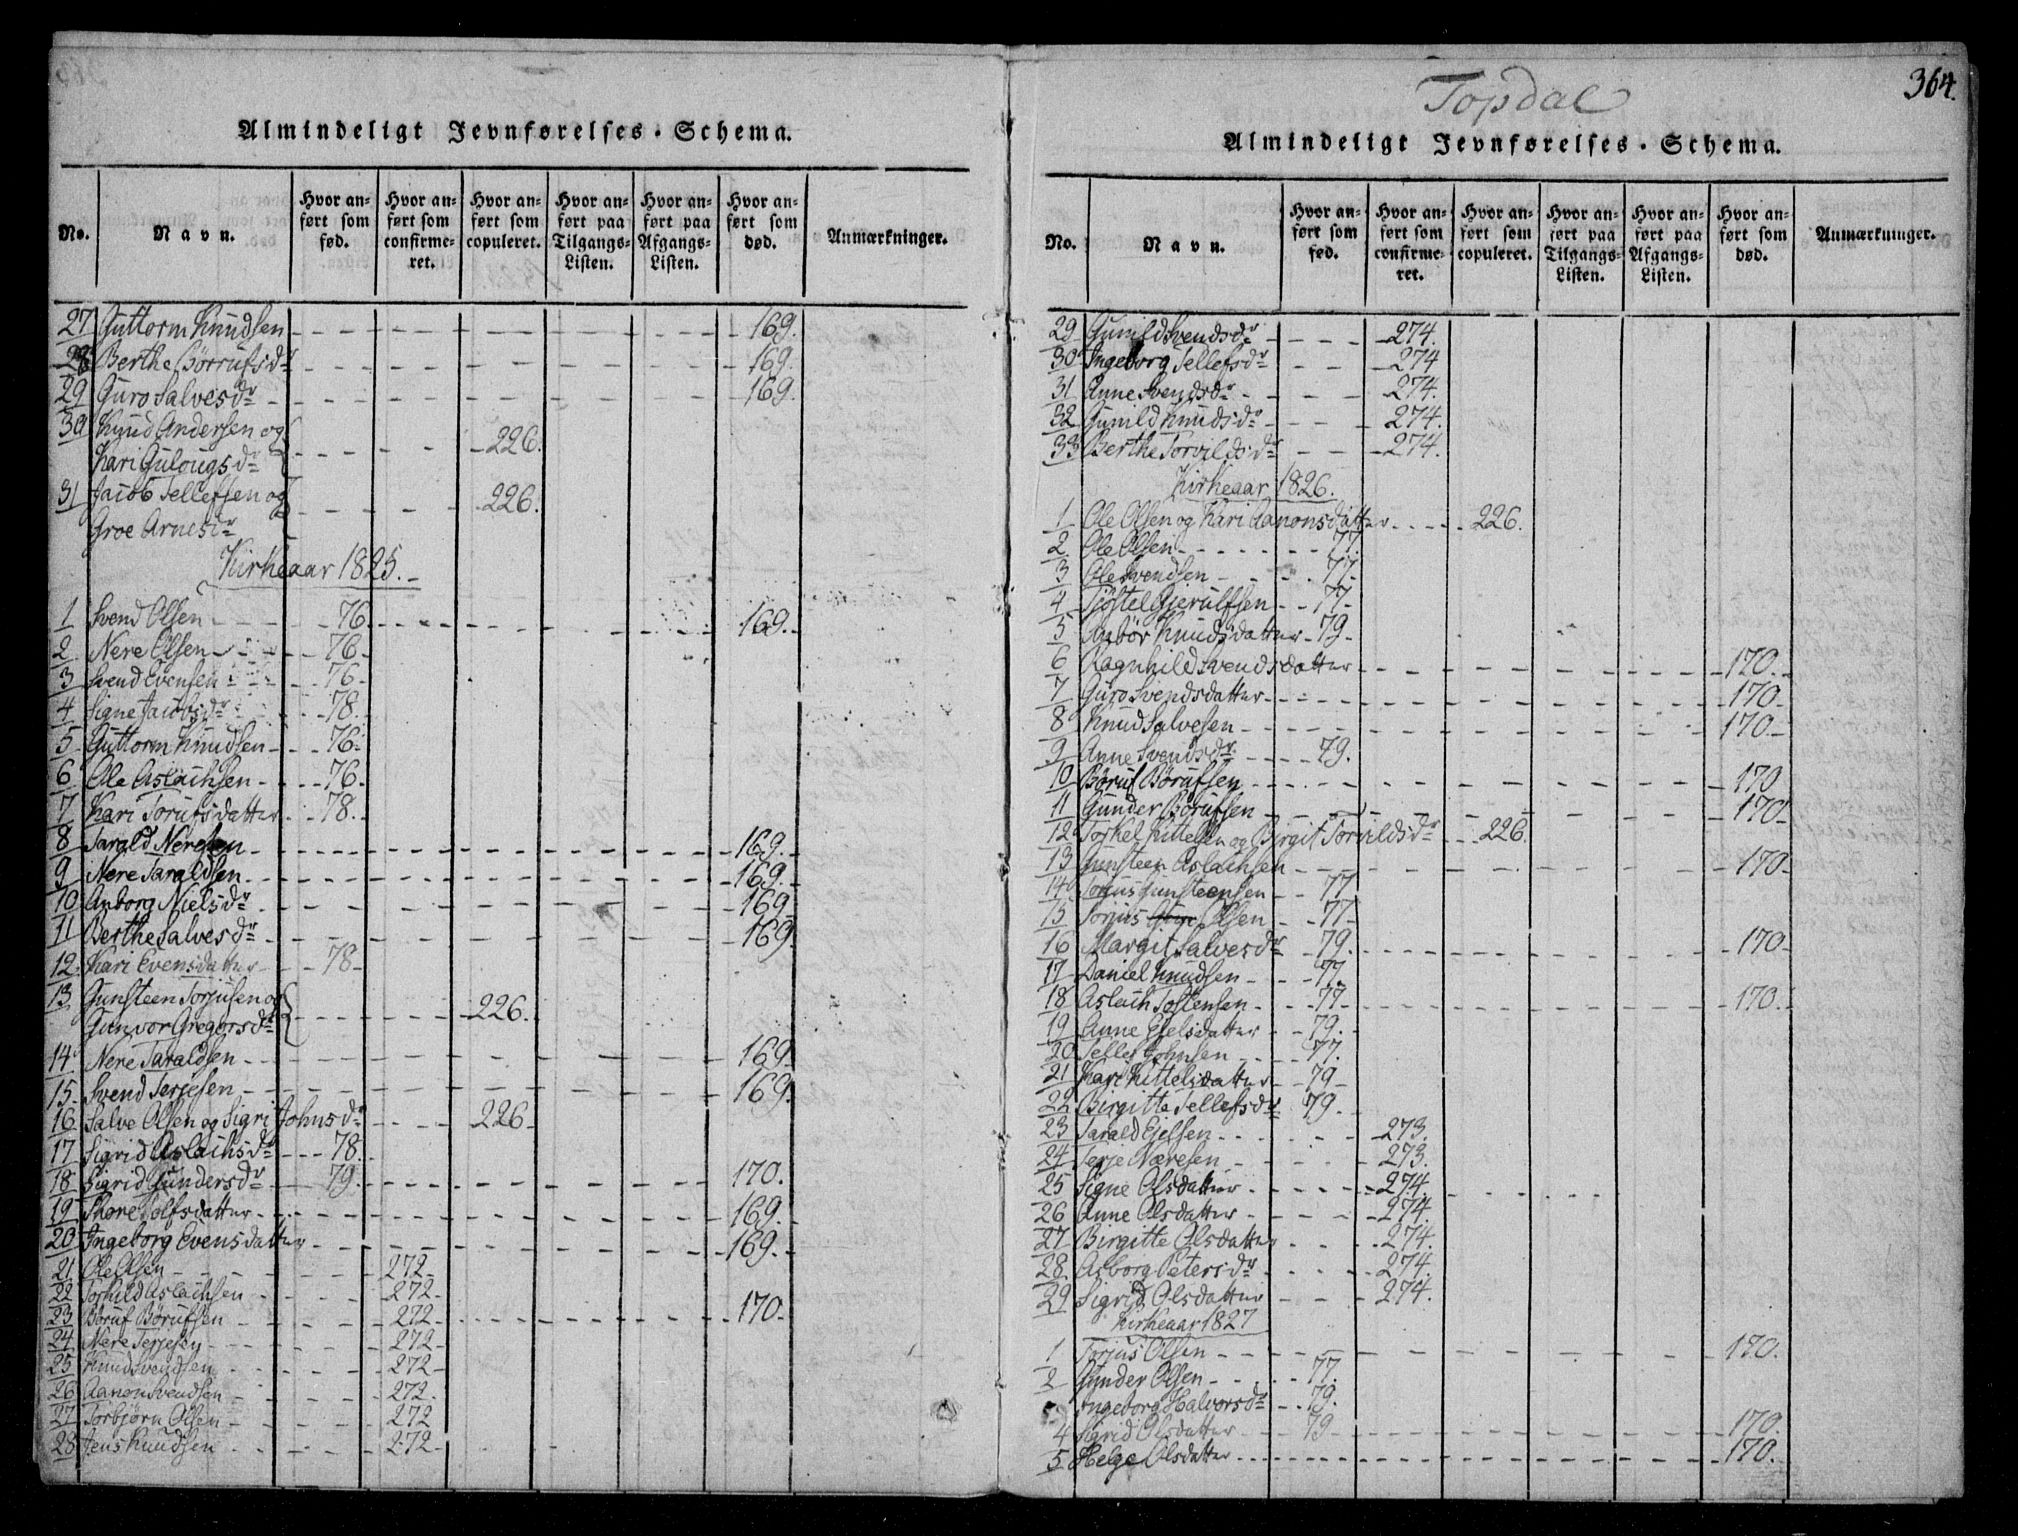 Almindeligt Jevnførelses-Schema.
No. Navn. Hvor anført som fød. Hvor anført som confirmeret. Hvor anført som copuleret. Hvor anført paa Tilgangs-Listen. Hvor anført paa Afgangs-Listen. Hvor anført som død. Anmærkninger.
27 Guttorm Knudsen 169.
28 Berthe Börrufsdr 169.
29 Guro Salvesdr 169.
30 Knud Andersen og
Kari Gulougsdr 226.
31 Jacob Tellefsen og
Groe Arnesdr 226.
Kirkeaar 1825.
1 Svend Olsen 76. 169.
2 Nere Olsen 76.
3 Svend Evensen 76.
4 Signe Jacobsdr 78.
5 Guttorm Knudsen 76.
6 Ole Aslachsen 76.
7 Kari Torufsdatter 78.
8 Tarald Neresen 169.
9 Nere Taraldsen 169.
10 Anborg Nielsdr 169
11 Berthe Salvesdr 169
12 Kari Evensdatter 78
13 Gunsteen Torjusen og
Gunvor Gregorsdr 226.
14 Nere Taraldsen 169.
15 Svend Terjesen 169.
16 Salve Olsen og Sigri Johnsdr 226
17 Sigrid Aslachsdr 78.
18 Sigrid Gundersdr 79. 170.
19 Thore Tolfsdatter 169.
20 Ingeborg Evensdatter 169.
21 Ole Olsen 272
22 Torkild Aslachsen 272
23 Böruf Börufsen 272 170.
24 Nere Terjesen 272
25 Knud Svendsen 272
26 Aanon Svendsen 272.
27 Torbjörn Olsen 272
28 Jens Knudsen 272
Topdal
364.
Almindeligt Jevnførelses-Schema.
No. Navn. Hvor anført som fød. Hvor anført som confirmeret. Hvor anført som copuleret. Hvor anført paa Tilgangs-Listen. Hvor anført paa Afgangs-Listen. Hvor anført som død. Anmærkninger.
29 Gunild Svendsdr 274.
30 Ingeborg Tellefsdr 274
31 Anne Svendsdr 274.
32 Gunild Knudsdr 274.
33 Berthe Torvildsdr 274.
Kirkeaar 1826.
1 Ole Olsen og Kari Aanonsdatter 226.
2 Ole Olsen 77.
3 Ole Svendsen 77
4 Tjöstel Gjerulfsen 77
5 Anbör Knudsdatter 79
6 Ragnhild Svendsdatter 170.
7 Guro Svendsdatter 170
8 Knud Salvesen 170
9 Anne Svendsdr 79.
10 Böruf Börufsen 170
11 Gunder Börufsen 170
12 Torkel Kittelsen og Birgit Torvildsdr 226
13 Gunsteen Aslachsen 170
14 Torjus Gunsteensen 77
15 Torjus Olsen 77
16 Margit Salvesdr 79. 170
17 Daniel Knudsen 77.
18 Aslach Tostensen 77 170.
19 Anne Ejelsdatter 79.
20 Tellef Johnsen 77.
21 Kari Kittelsdatter 79
22 Birgitte Tellefsdr 79.
23 Tarald Ejelsen 273.
24 Terje Næresen 273.
25 Signe Olsdatter 274
26 Anne Olsdatter 274
27 Birgitte Olsdatter 274.
28 Asborg Petersdr 274.
29 Sigrid Olsdatter 274.
Kirkeaar 1827
1 Torjus Olsen 170.
2 Gunder Olsen 77.
Ingeborg Halvorsdr 79.
4 Sigrid Olsdatter 79 170.
5 Helge Olsdatter 170.